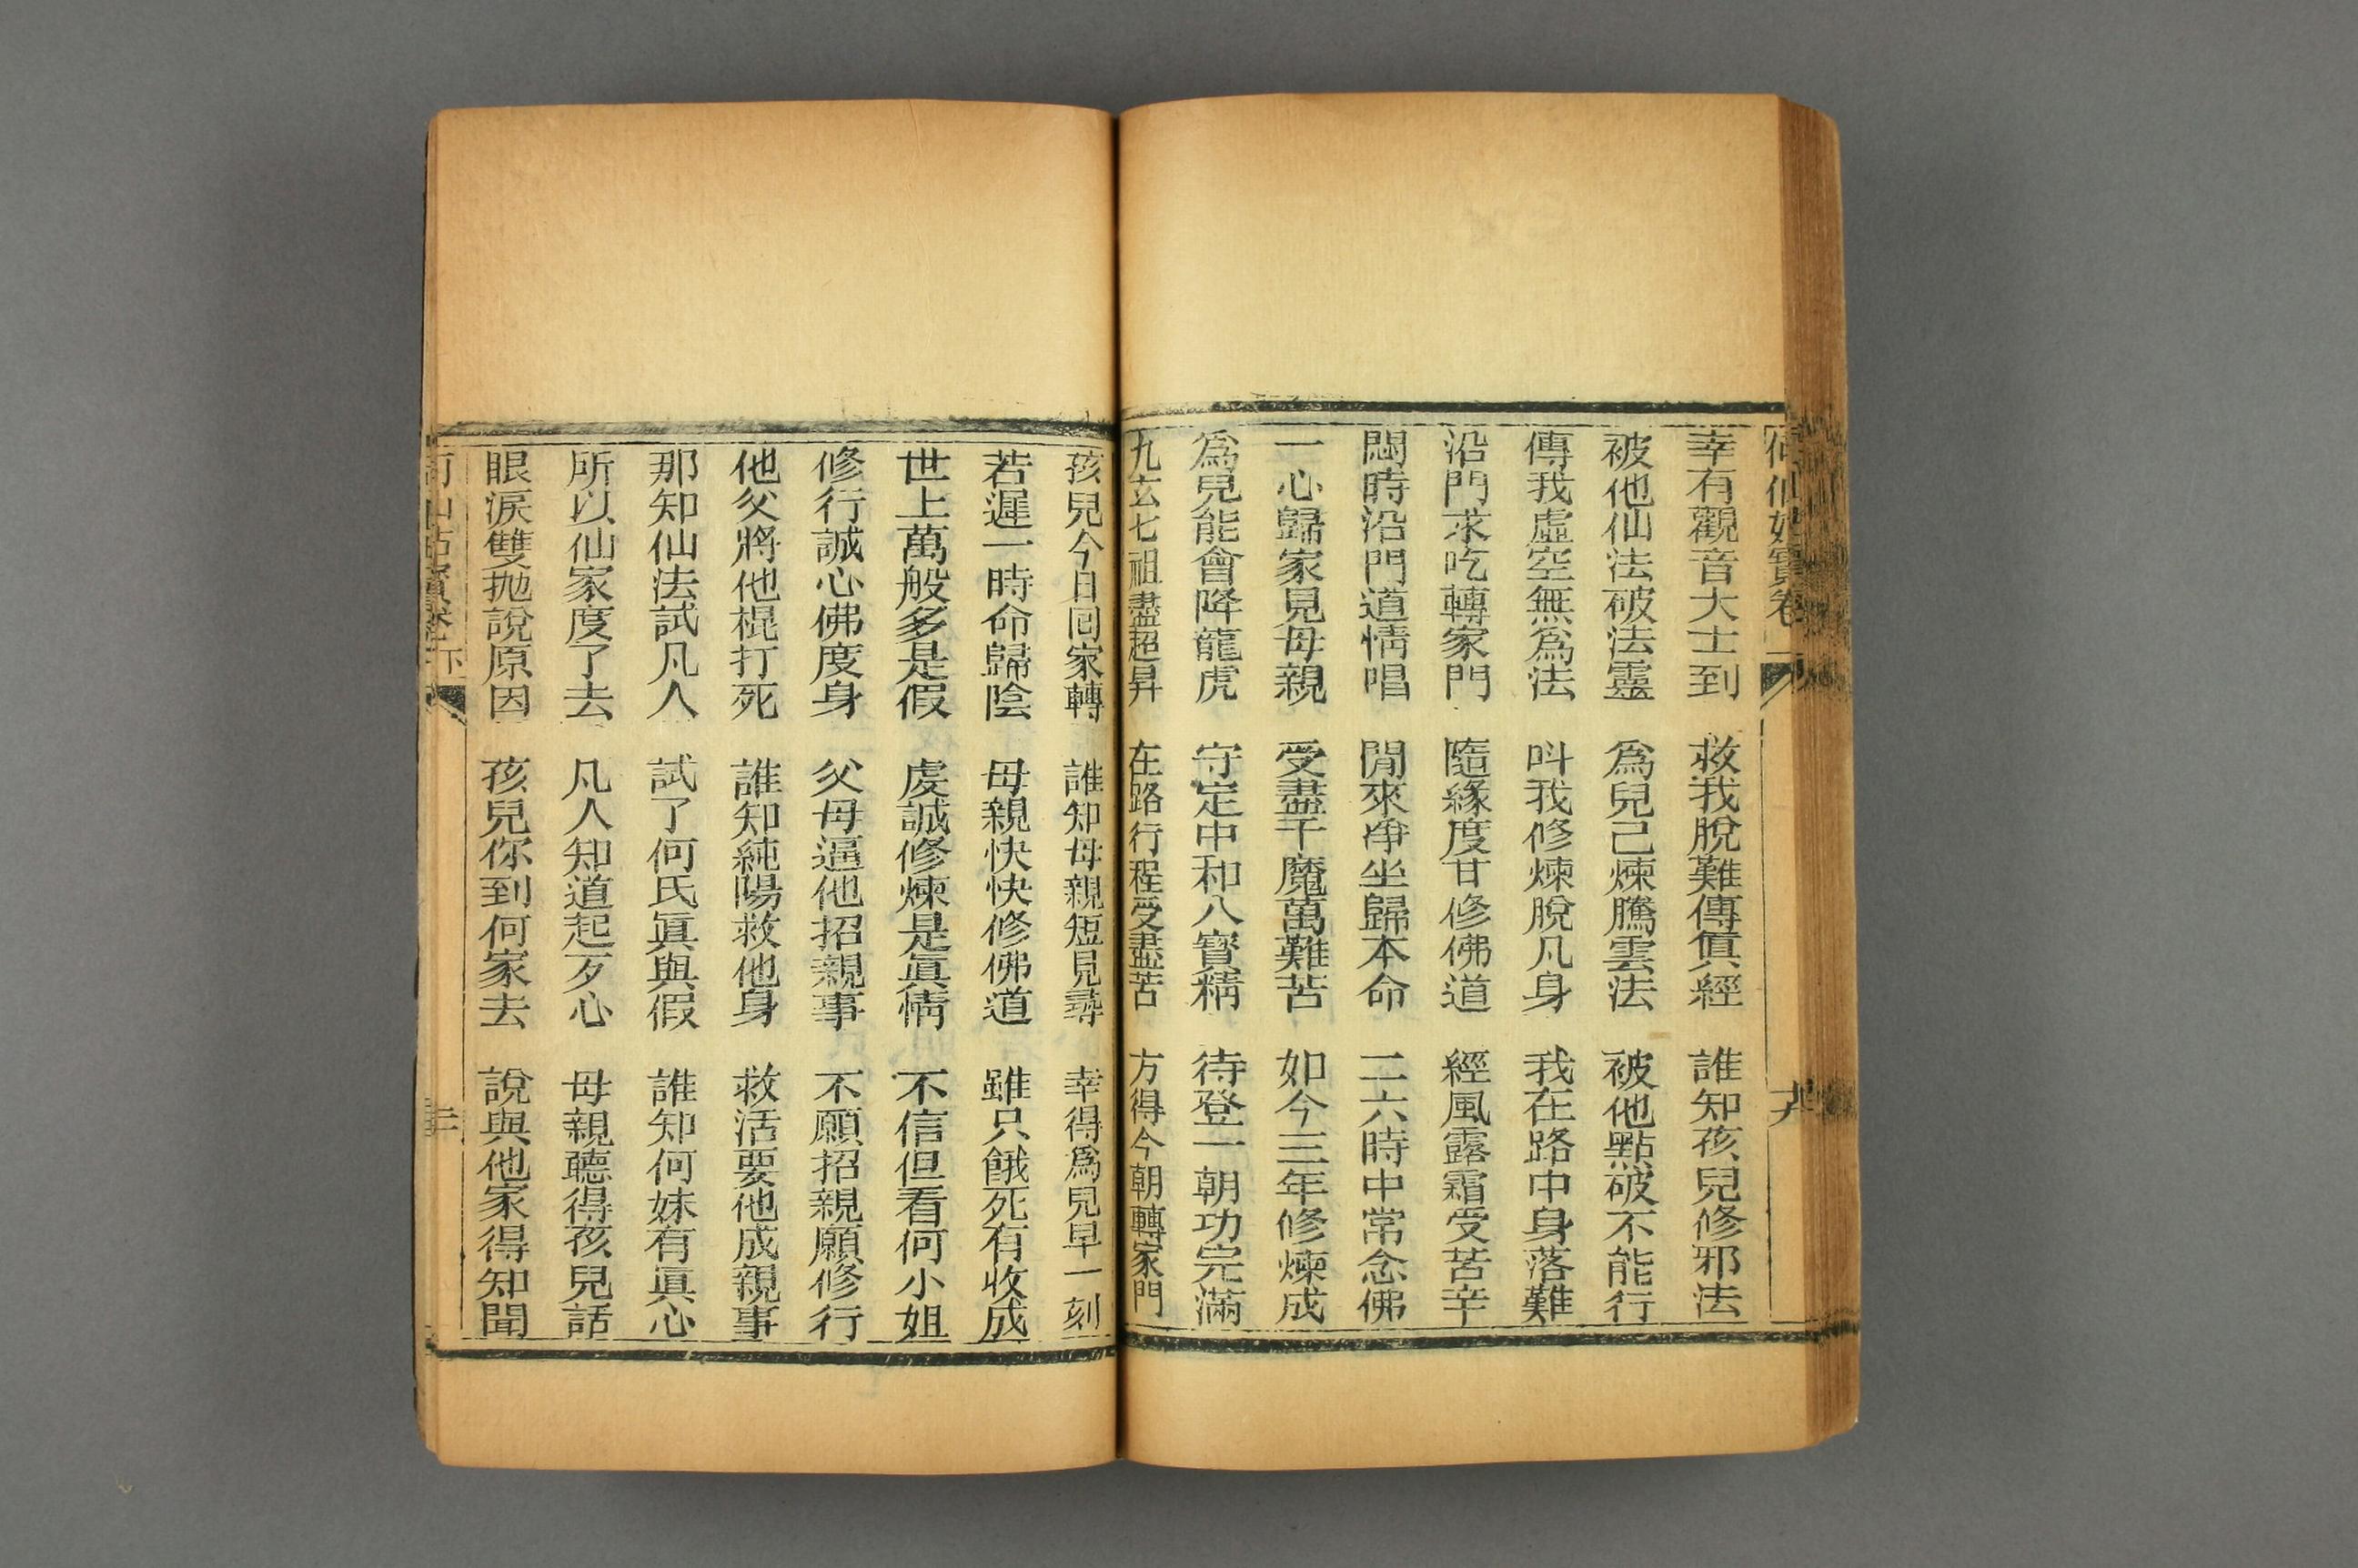 何仙姑寶卷
幸有觀音大士到 救我脫難傳眞經 誰知孩兒修邪法
被他仙法破法靈 爲兒己煉騰雲法 被他點破不能行
傳我虛空無爲法 叫我修煉脫凡身 我在路中身落難
沿門求吃轉家門 隨緣度甘修佛道 經風露霜受苦辛
悶時沿門道情唱 閒來淨坐歸本命 二六時中常念佛
一心歸家見母親 受盡千魔萬難苦 如今三年修煉成
爲兒能會降龍虎 守定中和八寳精 待登一朝功完滿
九玄七祖盡超昇 在路行程受盡苦 方得今朝轉家門
孩兒今日回家轉 誰知母親短見尋 幸得爲兒早一刻
若遲一時命歸陰 母親快快修佛道 雖只餓死有收成
世上萬般多是假 虔誠修煉是眞情 不信但看何小姐
修行誠心佛度身 父母逼他招親事 不願招親願修行
他父將他棍打死 誰知純陽救他身 救活要他成親事
那知仙法試凡人 試了何氏眞與假 誰知何妹有眞心
所以仙家度了去 凡人知道起歹心 母親聽得孩兒話
眼淚雙拋說原因 孩兒你到何家去 說與他家得知聞
何仙姑寶卷 下